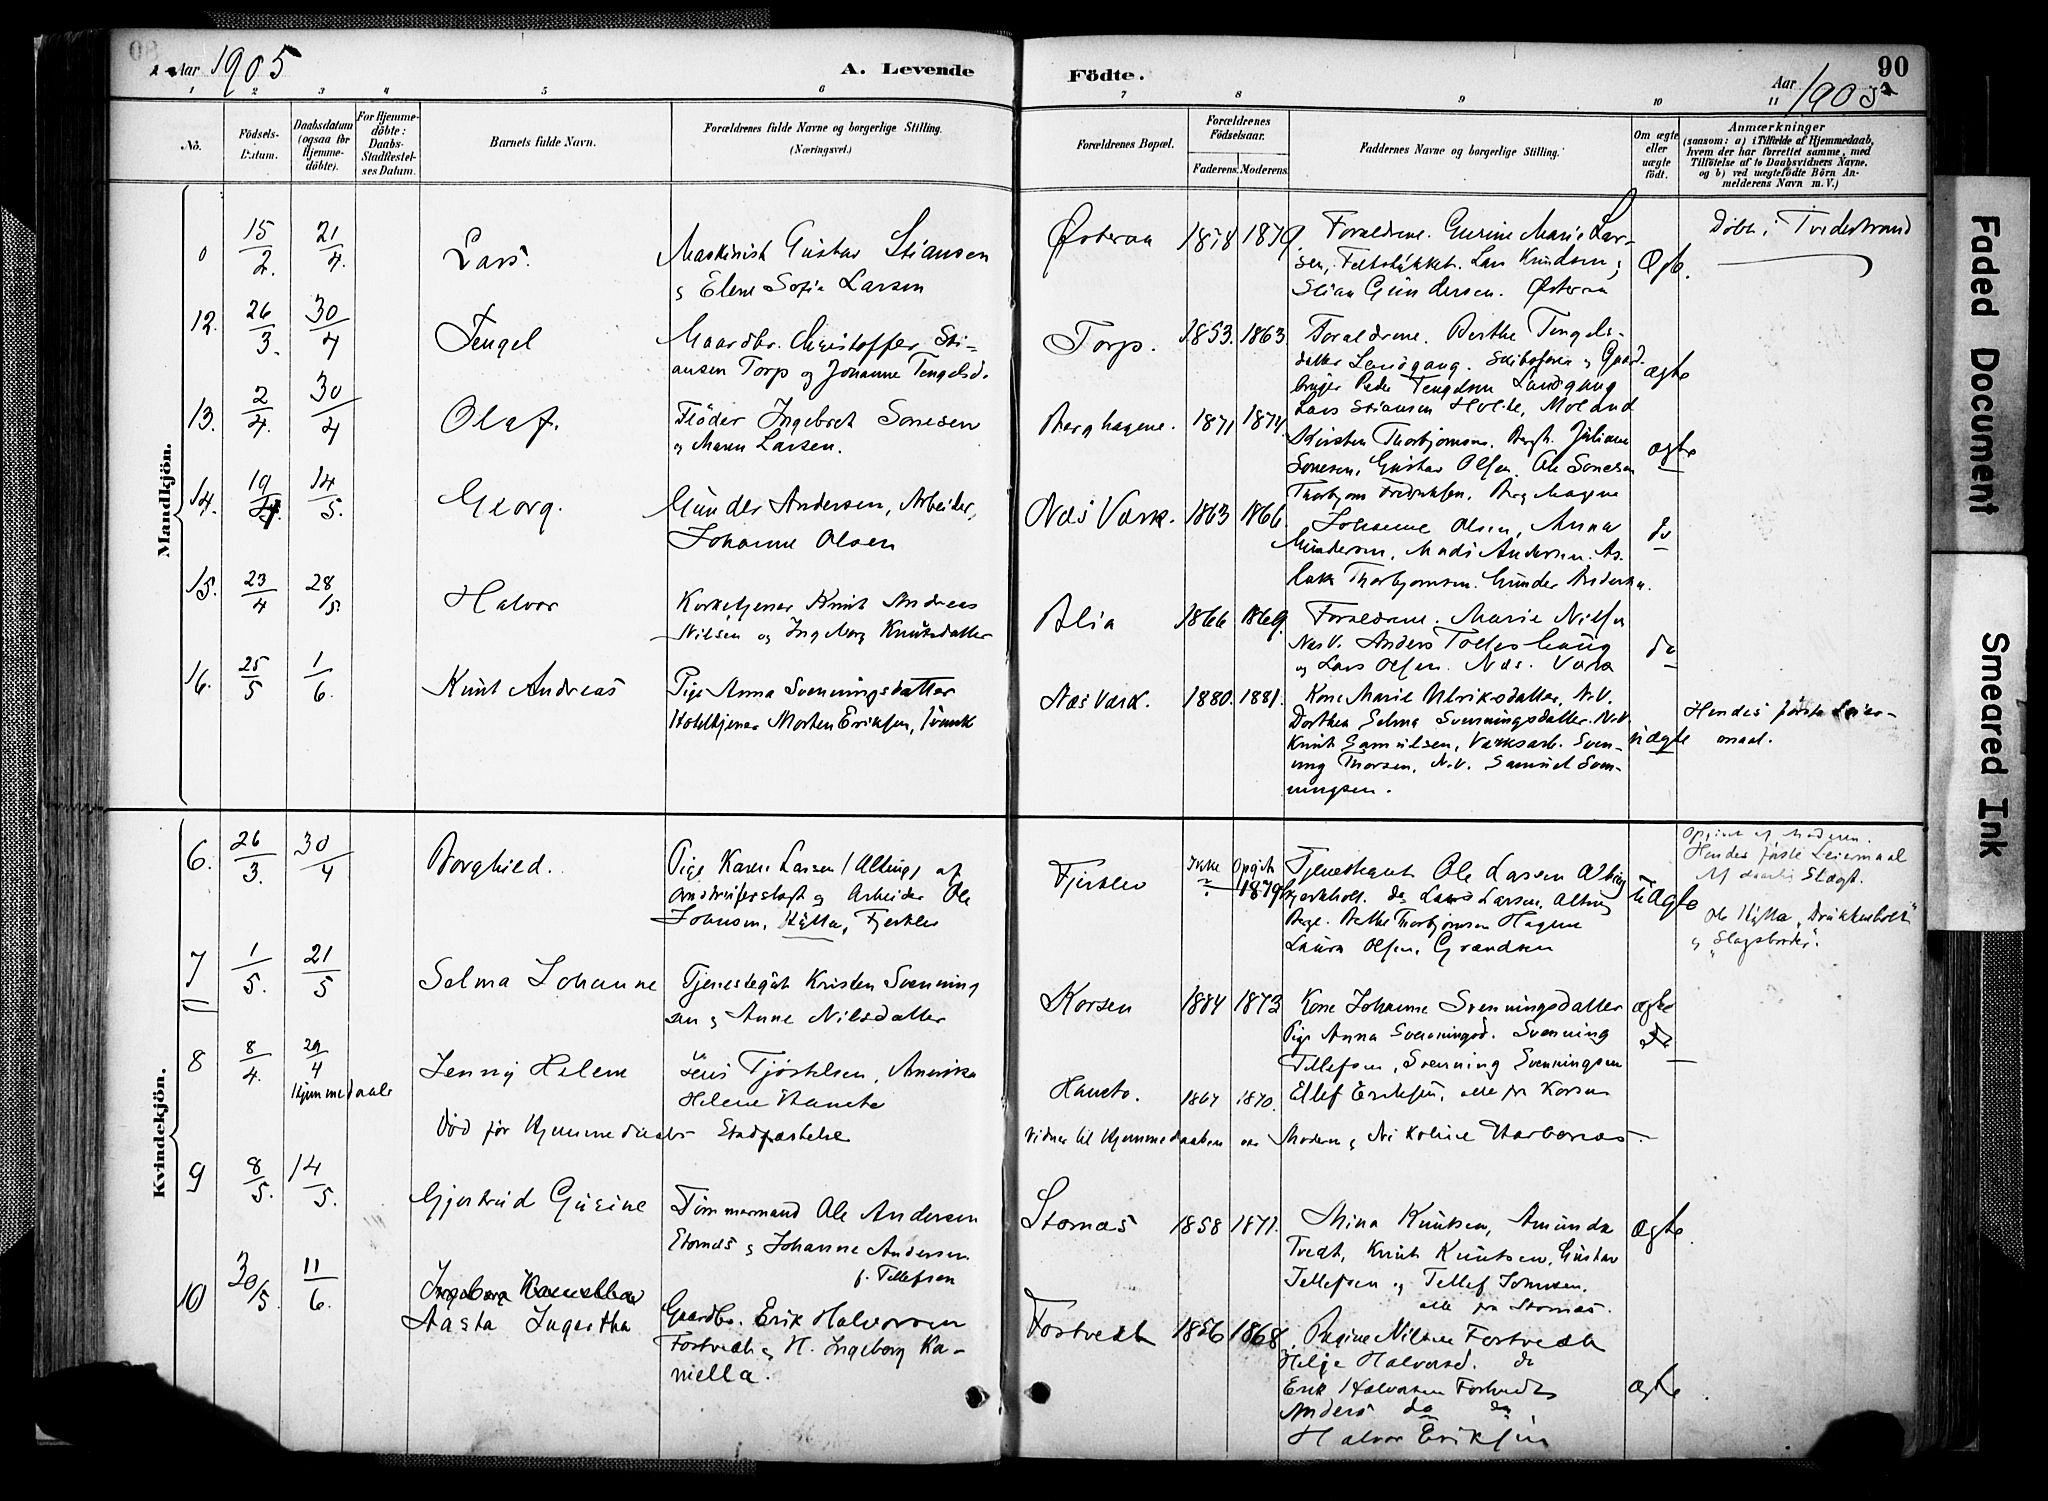 Aar 1905
A. Levende
Födte.
90
Aar 1905
1 2 3 4 5 6 7 8 9 10 11
No.
Födsels-
Datum.
Daabsdatum
(ogsaa for
Hjemme-
döbte).
For Hjemme-
döbte:
Daabs-
Stadfæstel-
ses Datum.
Barnets fulde Navn.
Forældrenes fulde Navne og borgerlige Stilling.
(Næringsvei.)
Forældrenes Bopæl.
Forældrenes
Födselsaar.
Faderens. Moderens.
Faddernes Navne og borgerlige Stilling.
Om ægte
eller
uægte
født.
Anmærkninger
(saasom: a) i Tilfælde af Hjemmedaab,
hvem der har forrettet samme, med
Tilföielse af to Daabsvidners Navne,
og b) ved uægtefödte Börn An-
melderens Navn m. V.)
Mandkjön.
15/2 21/4 Lars.
Maskinist Gustav Stiansen
og Elene Sofie Larsen
Østeraa 1878 1879
Forældrene. Gurine Marie Lar-
sen, Lars Knudsen,
Stian Gundersen. Østeraa
Ægte.
Døbt i Tvedestrand
12. 26/3. 30/4 Tengel
Gaardbr. Christoffer Sti-
ansen Torp og Johanne Tengelsd.
Torp. 1853. 1863
Forældrene. Berthe Tengels-
datter Landgang. Skibsfører og Gaard-
bruger Peder Tengelsen Landgang
Lars Stiansen Holte, Moland
ægte
13. 2/4. 30/4 Olaf.
Fløder Ingebret Sonesen
og Maren Larsen.
Berghagene. 1871 1874.
Kirsten Thorbjornsen. Bergh. Juliane
Sonesen, Gustav Olsen, Ole Sonesen
Thorbjorn Fredriksen. Berg Hagene
ægte
14. 19/4. 14/5. Georg.
Gunder Andersen, Arbeider,
Johanne Olsen
Næs Værk. 1863 1866
Johanne Olsen, Anna
Gundersen, Mads Andersen. As-
lak Thorbjornsen. Gunder Andersen.
do
15. 23/4 28/5. Halvor
Kirketjener Knut Andreas
Nilsen og Ingeborg Knutsdatter
Blia 1866 1869.
Forældrene. Marie Nilsen
Næs V. Anders Tollefshaug
og Lars Olsen. Næs. Værk
do
16. 25/5 1/6. Knut Andreas
Pige Anna Svenningsdatter
Hotelltjener Morten Eriksen,
Næs Værk. 1880. 1881.
Kone Marie Ulriksdatter, N.V.
Dorthea Selma Svenningsdatter. N.V.
Knut Samuelsen, Værksarb. Sven-
ning Thorsen, N.V. Samuel Sven-
ningsen.
uægte
Hendes første Leier-
maal.
Kvindekjön.
6. 26/3. 30/4 Borghild.
Pige Karen Larsen (Alting) af
og Arbeider Ole
Johnsen, Hytta, Fjerkler
Ikke Opgit
1879
Ole Larsen Alting
do Lars Larsen, Alting
Berthe Thorbjornsen Hagene
Laura Olsen, Grændsen
uægte
Opgivet af Moderen.
Hendes første Leiermaal
Af daarlig Slægt.
Ole Hytta "Drukkenbolt"
og "Slagsbroder".
7 1/5. 21/5 Selma Johanne
Tjenestegut Kristen Svenning
sen og Anne Nilsdatter
Korsen 1884 1873
Kone Johanne Svenningsdatter
Pige Anna Svenningsd. Svenning
Tellefsen, Svenning Svenningsen
Ellef Eriksen, alle fra Korsen
ægte
do
8 8/4. 29/4 Jenny Helene
Hjemmedaab
Jens Tjøstelsen, Amerika
Helene Haneto
Haneto. 1867 1870.
Død før Hjemmedaabs Stadfæstelse
Vidner til Hjemmedaaben var Moderen og Nikoline
9 8/5. 14/5. Gjertrud Gusine
Tømmermand Ole Andersen
Stornæs og Johanne Andersen
f. Tellefsen
Stornæs 1858 1871.
Mina Knutsen, Amunda
Tvedt, Knut Knutsen, Gustav
Tellefsen og Tellef Johnsen.
alle fra Stornæs.
ægte.
10 30/5 11/6. Ingeborg Kamilla
Aasta Ingertha
Gaardbr. Erik Halvorsen
Fostvedt og H. Ingeborg Ka-
mella.
Fostvedt 1856 1868
Regine Nilsen Fostvedt
Helje Halvorsd. do
Erik Halvorsen Fostvedt
Anders do do
Halvor Eriksen
ægte
Faded Document
Smeared Ink